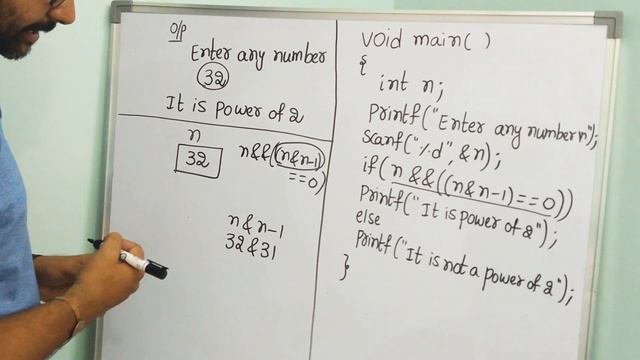 O/P
Enter any number
32
It is power of 2
n
32
n&&((n&n-1)
==0)
n & n-1
32 & 31
void main( )
{
int n;
Printf("Enter any number n");
scanf("%d", &n);
if(n &&((n&n-1)==0))
Printf("It is power of 2");
else
Printf("It is not a power of 2");
}